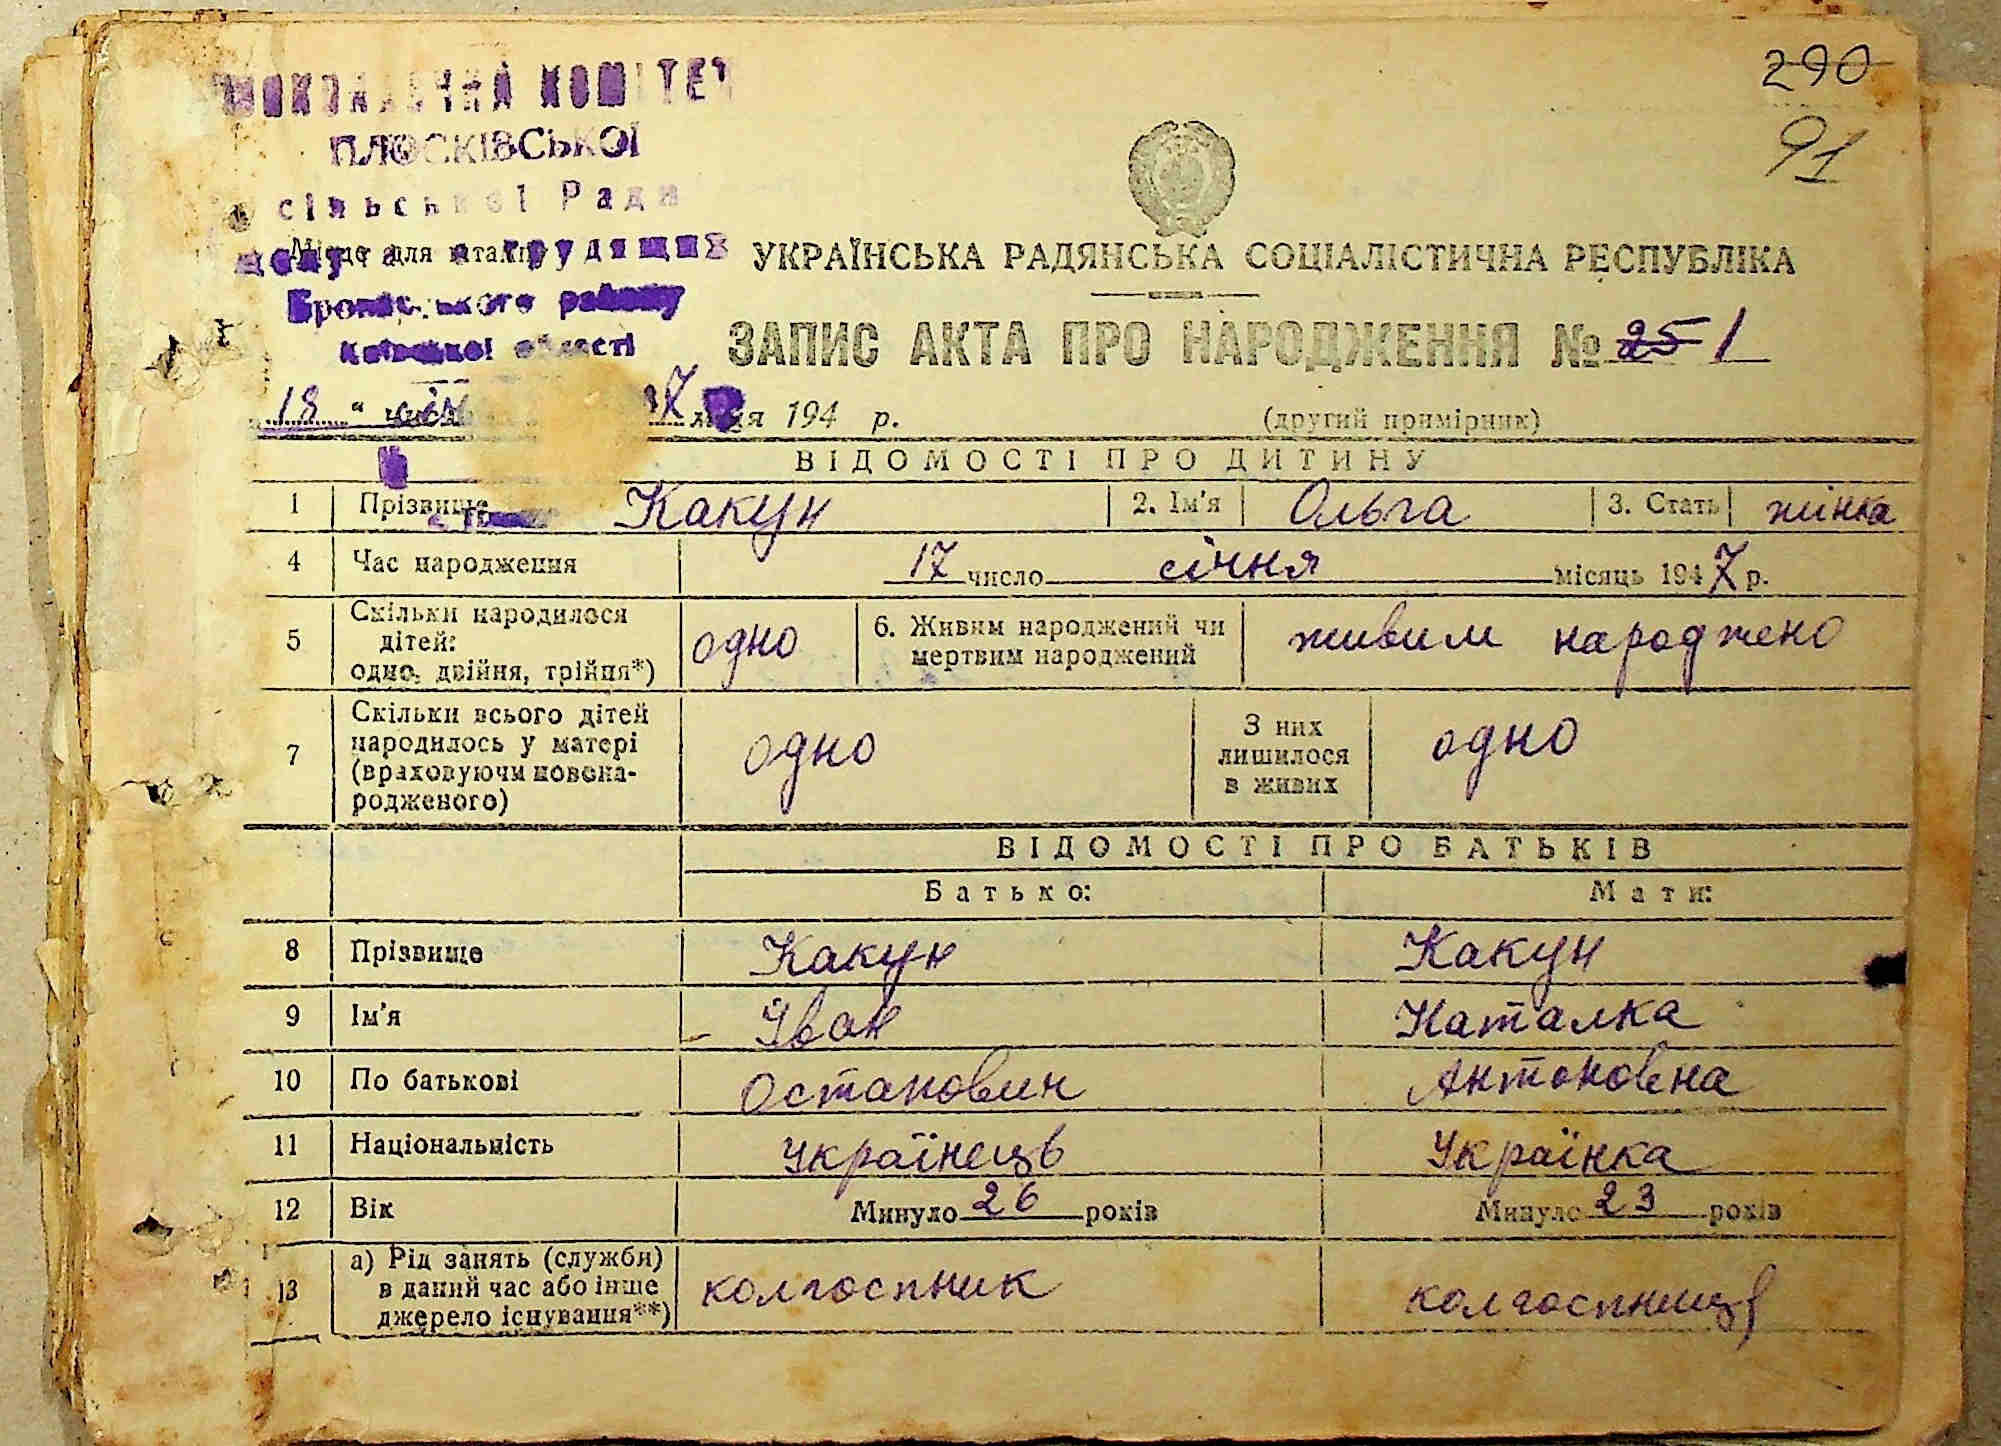 290
91
ВИКОНАВЧИЙ КОМІТЕТ
ПЛОСКІВСЬКОЇ
сільської Ради
депутатів трудящих
Місце для штампу
Броварського району
Київської області
УКРАЇНСЬКА РАДЯНСЬКА СОЦІАЛІСТИЧНА РЕСПУБЛІКА
ЗАПИС АКТА ПРО НАРОДЖЕННЯ № 25 1
18 " число місяця 194 7 р.
(другий примірник)
ВІДОМОСТІ ПРО ДИТИНУ
1 Прізвище Какун 2. Ім'я Ольга 3. Стать жінка
4 Час народження 17 число січня місяць 1947 р.
5 Скільки народилося дітей: одно, двійня, трійня*) одно 6. Живим народжений чи мертвим народжений живим народжено
7 Скільки всього дітей народилось у матері (враховуючи новонародженого) одно З них лишилося в живих одно
ВІДОМОСТІ ПРО БАТЬКІВ
Батько: Мати:
8 Прізвище Какун Какун
9 Ім'я Іван Наталка
10 По батькові Остапович Антоновна
11 Національність Українець Українка
12 Вік Минуло 26 років Минуло 23 років
13 а) Рід занять (служби) в даний час або інше джерело існування**) колгоспник колгоспниця